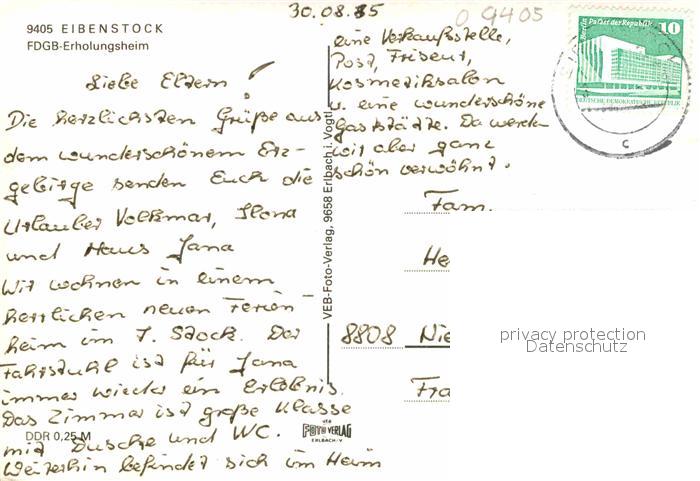 30.08.85
0 9405
9405 EIBENSTOCK
FDGB-Erholungsheim
Liebe Eltern!
Die herzlichsten Grüße aus
dem wunderschönem Erz-
gebirge senden Euch die
Urlauber Volkmar, Ilona
und Jana
Wir wohnen in einem
herrlichen neuen Ferien-
heim im 7. Stock. Der
Fahrstuhl ist für Jana
immer wieder ein Erlebnis.
Das Zimmer ist große Klasse
mit Dusche und WC.
Weiterhin befindet sich im Heim
eine Verkaufsstelle,
Post, Friseur,
Kosmetiksalon
u. eine wunderschöne
Gaststätte. Da werden
wir aber ganz
schön verwöhnt.
DDR 0,25 M
VEB-Foto-Verlag, 9658 Erlbach i. Vogtl.
VEB
FOTO VERLAG
ERLBACH/V
Berlin, Palast der Republik
10
DEUTSCHE DEMOKRATISCHE REPUBLIK
c
Fam.
He
8808 Nie
Fra
privacy protection
Datenschutz